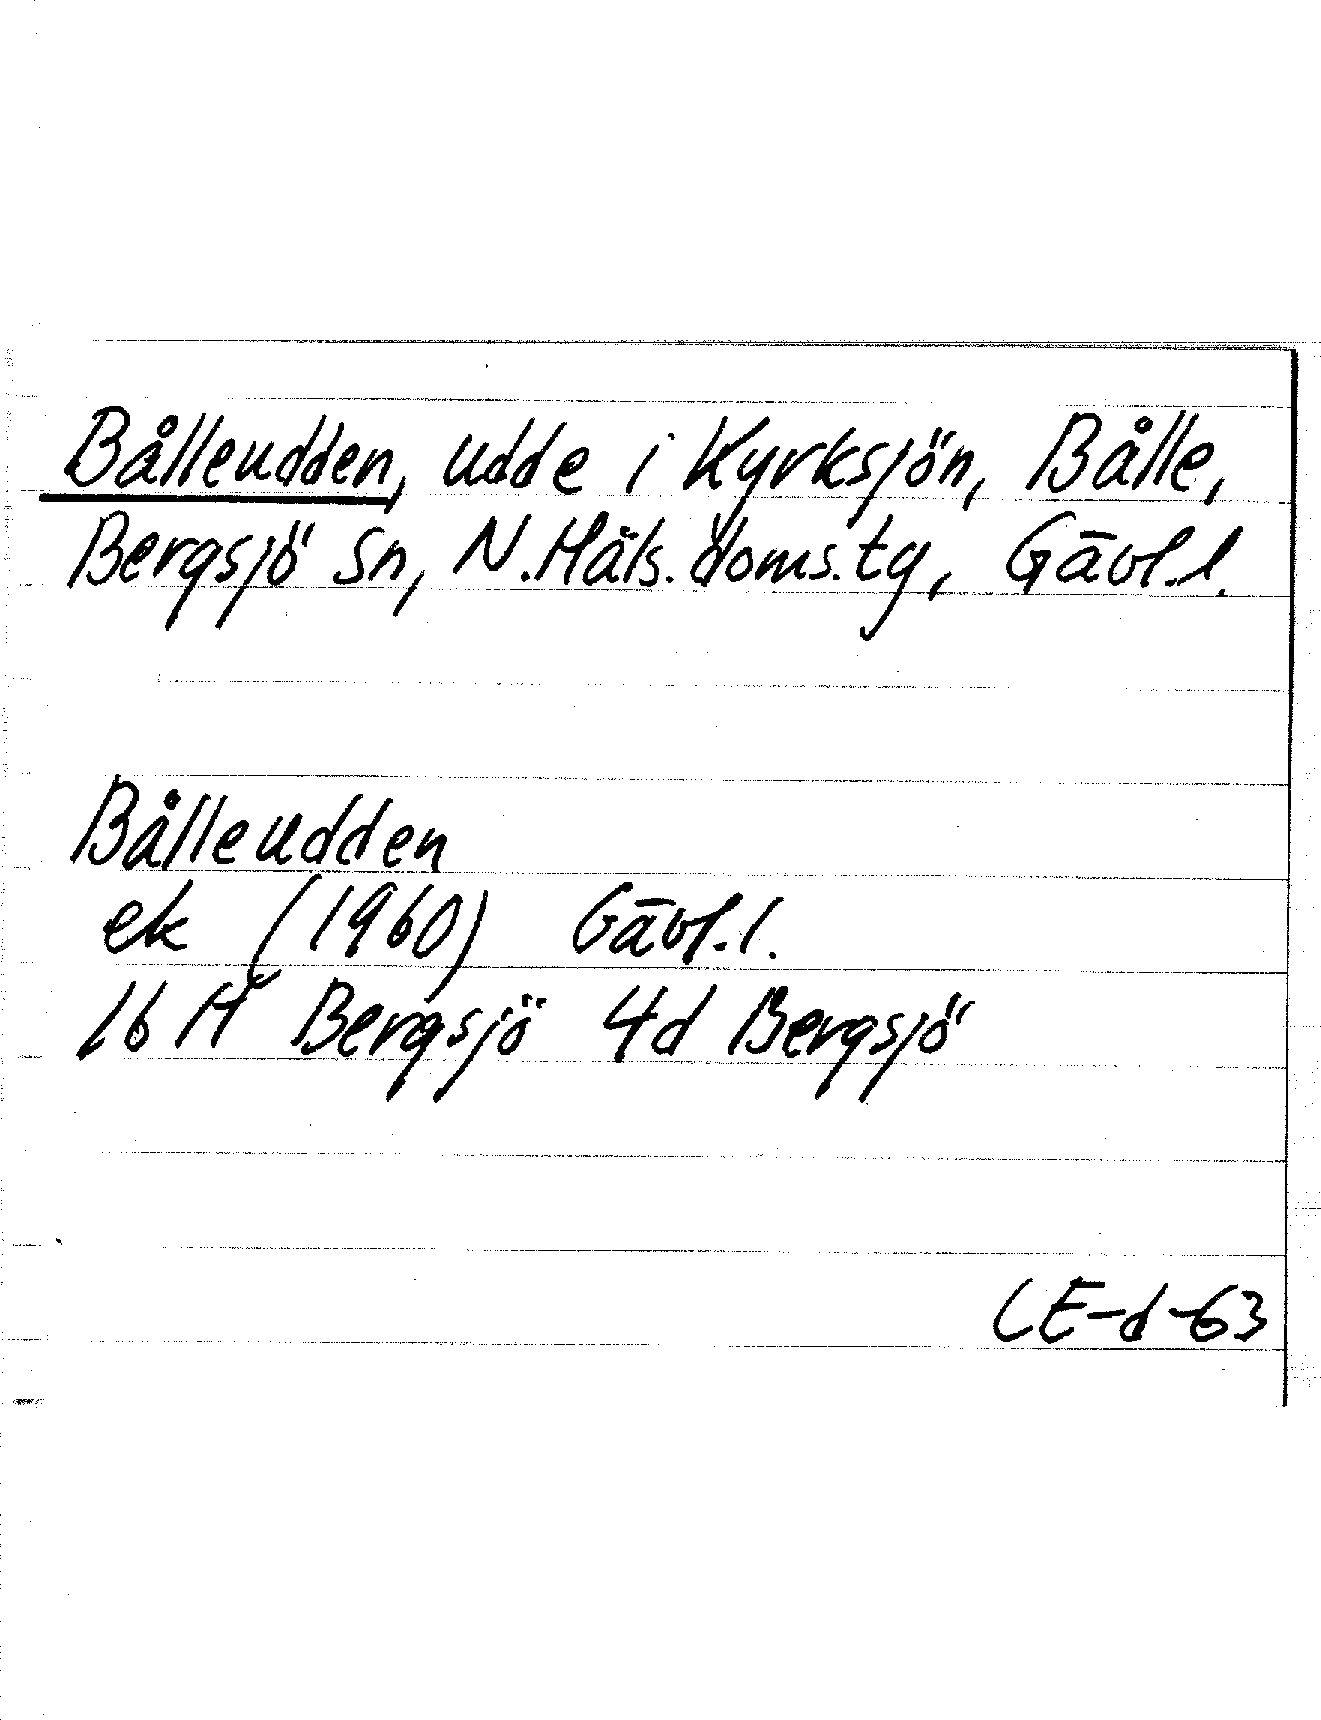 Bålleudden, udde i Kyrksjön, Bålle,
Bergsjö Sn, N.Häls.doms.tg, Gävl.l.
Bålleudden
ek (1960) Gävl.l.
16 H Bergsjö 4d Bergsjö
CE-d-63